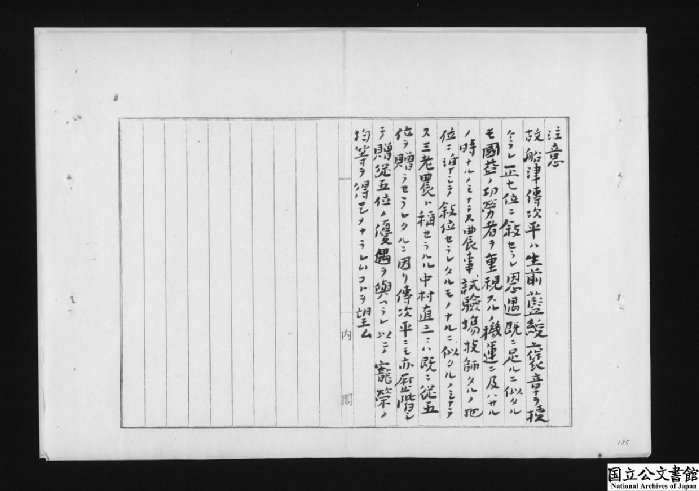 注意
故船津傳次平ハ生前藍綬褒章ヲ授
ケラレ正七位ニ敍セラレ恩遇既ニ足ルニ似タル
モ國益ノ功勞者ヲ重視スルノ機運ニ及ハサル
ノ時ナルノミナラス農事試験場技師タルノ地
位ニ準シテ敍位セラレタルモノナルニ似タルノミナラ
ス三老農ト稱セラルル中村直三ニハ既ニ從五
位ヲ贈ラセラレタルニ因リ傳次平ニモ亦陞シ
テ贈從五位ノ優遇ヲ與ヘラレ以テ寵榮ノ
均等ヲ得セシメラレムコトヲ望ム
内閣
185
国立公文書館
National Archives of Japan